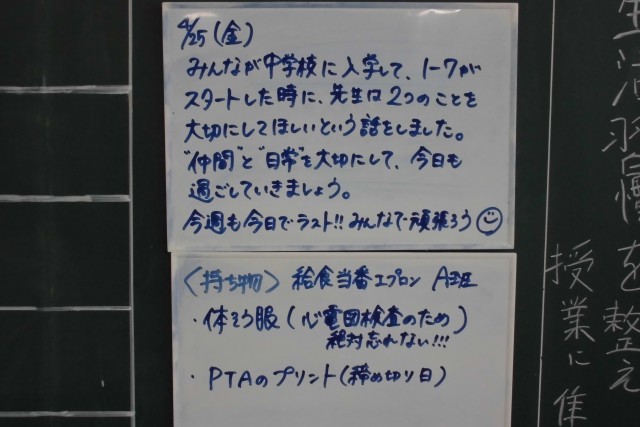 4/25(金)
みんなが中学校に入学して、1-7が
スタートした時に、先生は2つのことを
大切にしてほしいという話をしました。
"仲間"と"日常"を大切にして、今日も
過ごしていきましょう。
今週も今日でラスト!!みんなで頑張ろう
〈持ち物〉 給食当番エプロン A班
・体そう服(心電図検査のため)
絶対忘れない!!!
・PTAのプリント(締め切り日)
を整え
授業に